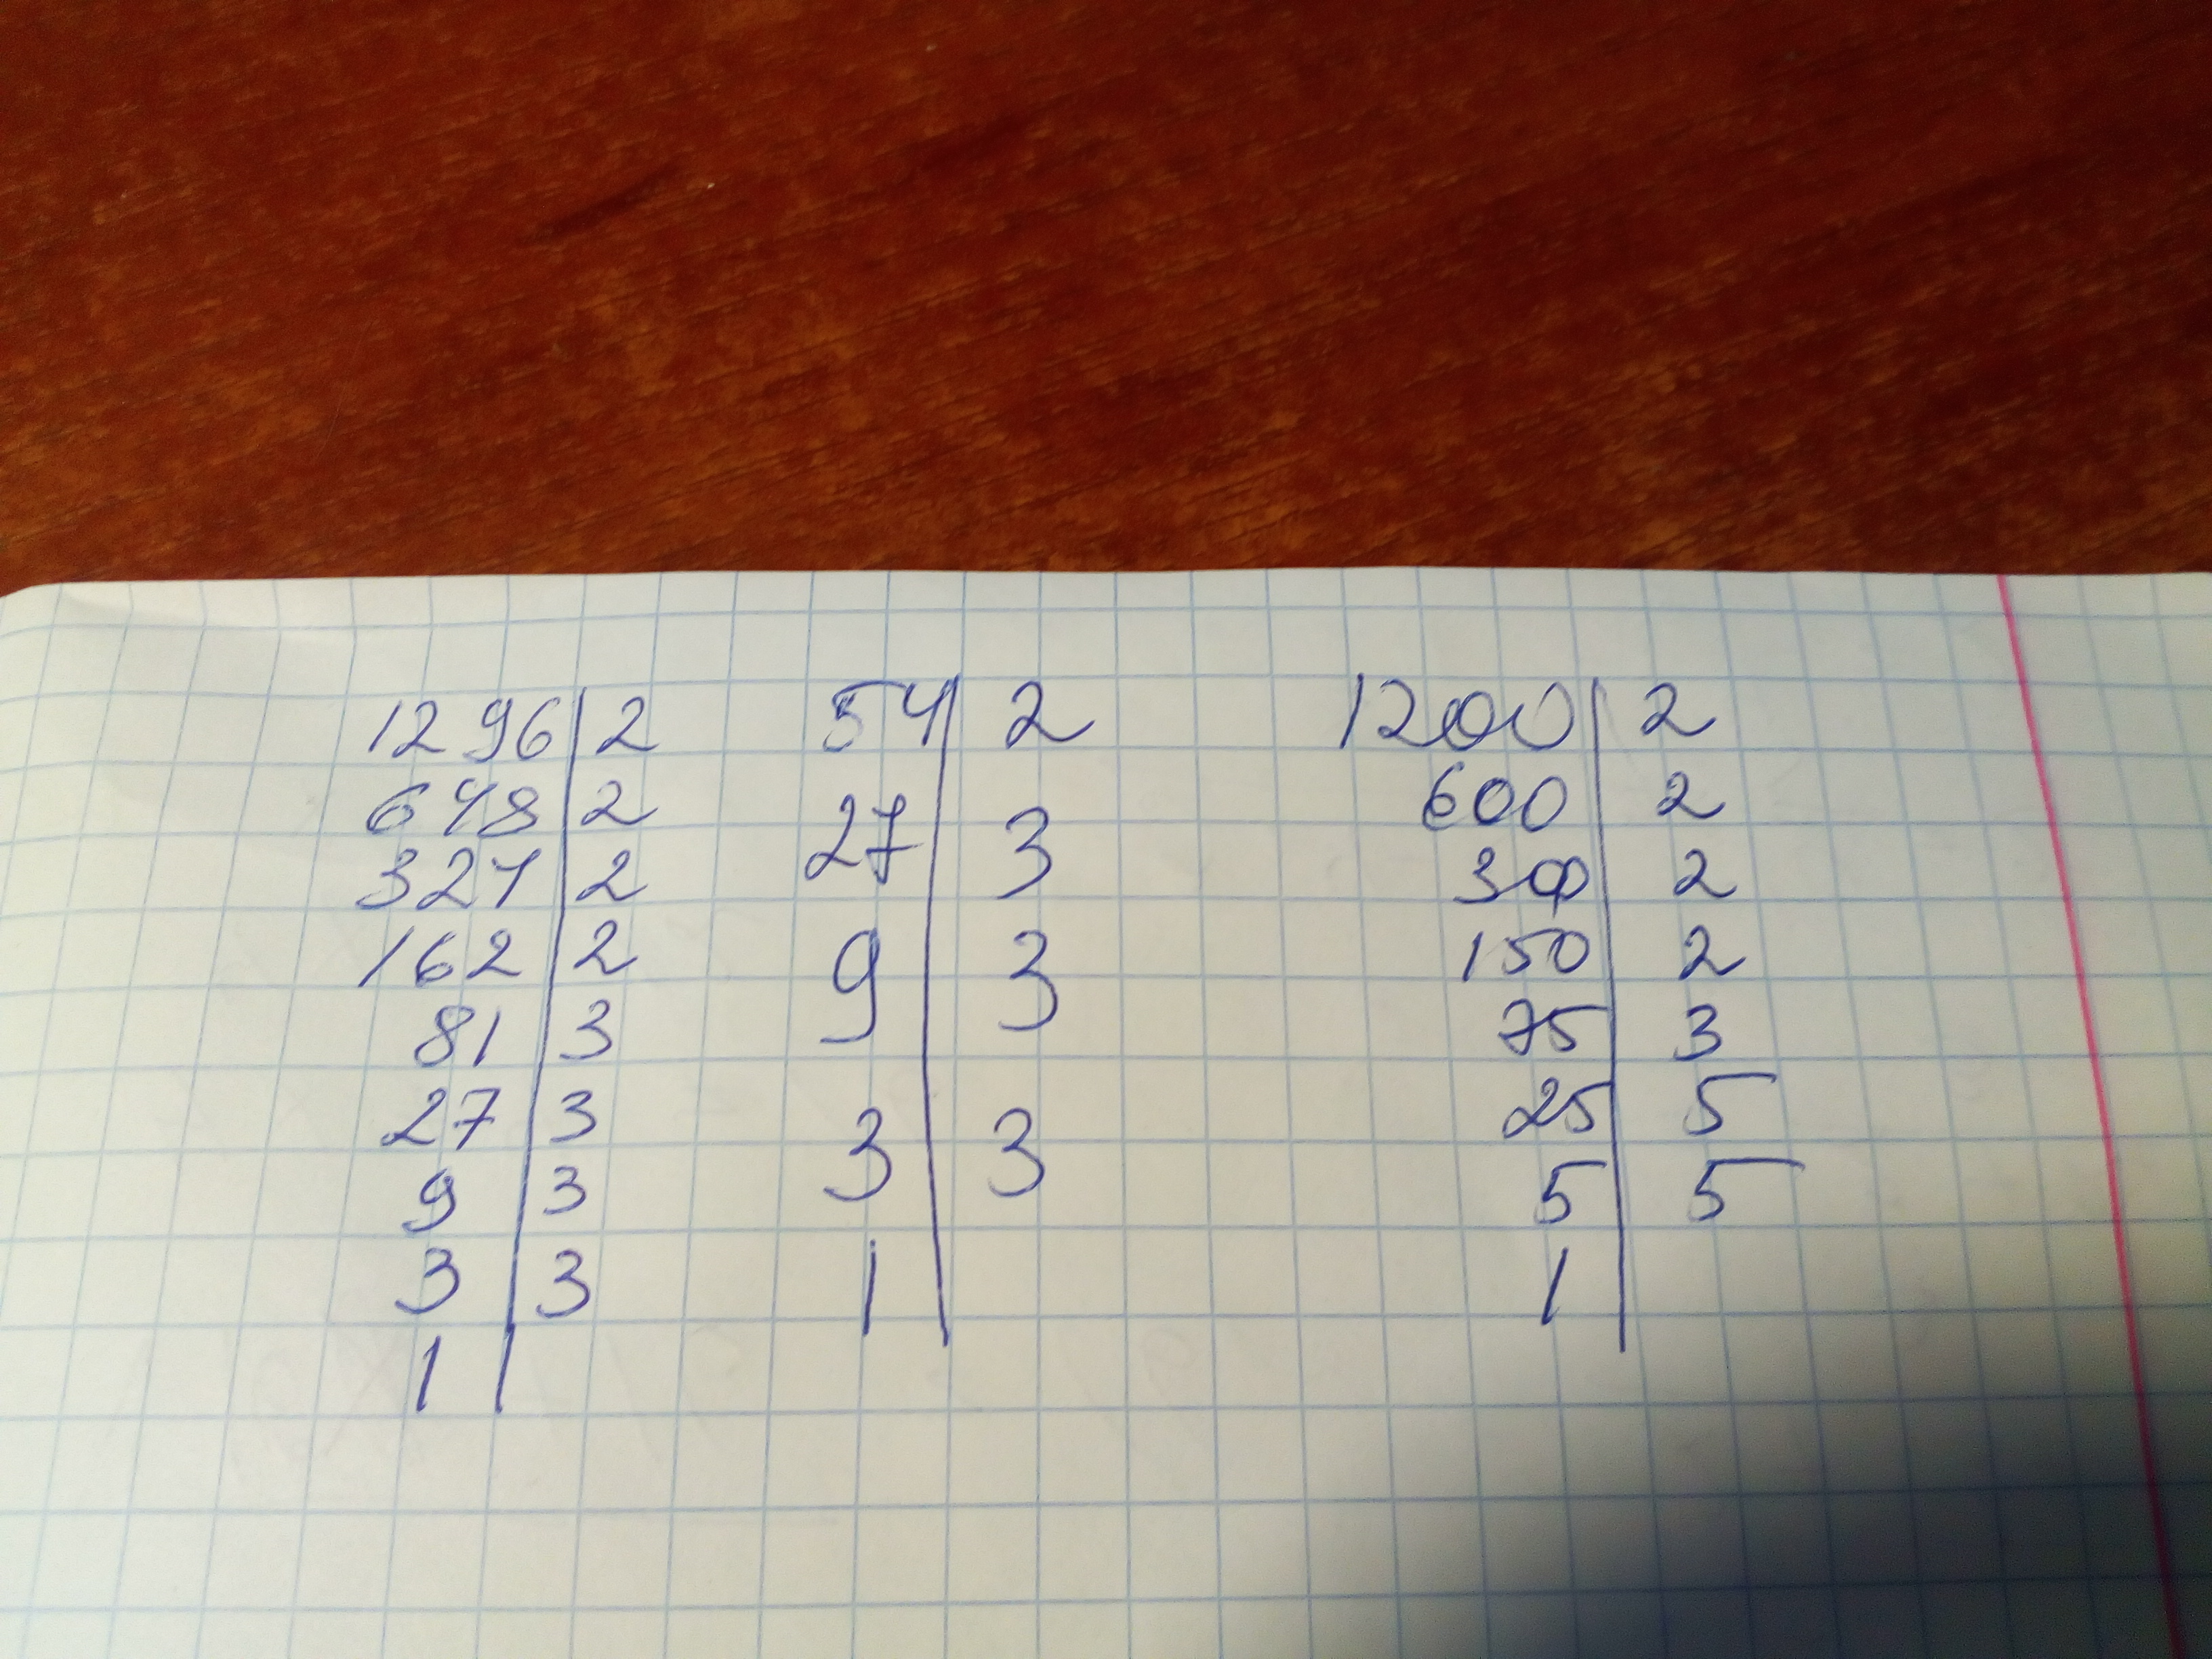 1296 | 2
648 | 2
324 | 2
162 | 2
81 | 3
27 | 3
9 | 3
3 | 3
1 |
54 | 2
27 | 3
9 | 3
3 | 3
1 |
1200 | 2
600 | 2
300 | 2
150 | 2
75 | 3
25 | 5
5 | 5
1 |